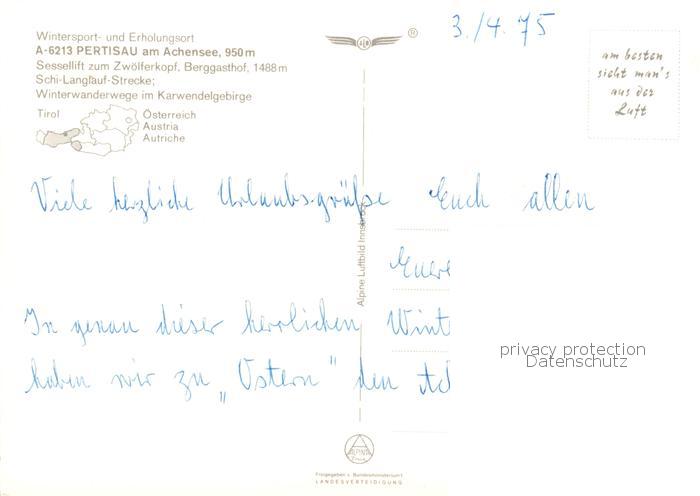 Wintersport- und Erholungsort
A-6213 PERTISAU am Achensee, 950 m
Sessellift zum Zwölferkopf, Berggasthof, 1488 m
Schi-Langlauf-Strecke;
Winterwanderwege im Karwendelgebirge
Tirol
Österreich
Austria
Autriche
®
3./4. 75
am besten
sieht man's
aus der
Luft
Viele herzliche Urlaubsgrüße Euch allen
Alpine Luftbild Innsbruck
Eure
In genau dieser herrlichen Wint
haben wir zu „Ostern" den
privacy protection
Datenschutz
ALPINA
Freigegeben v. Bundesministerium f.
LANDESVERTEIDIGUNG